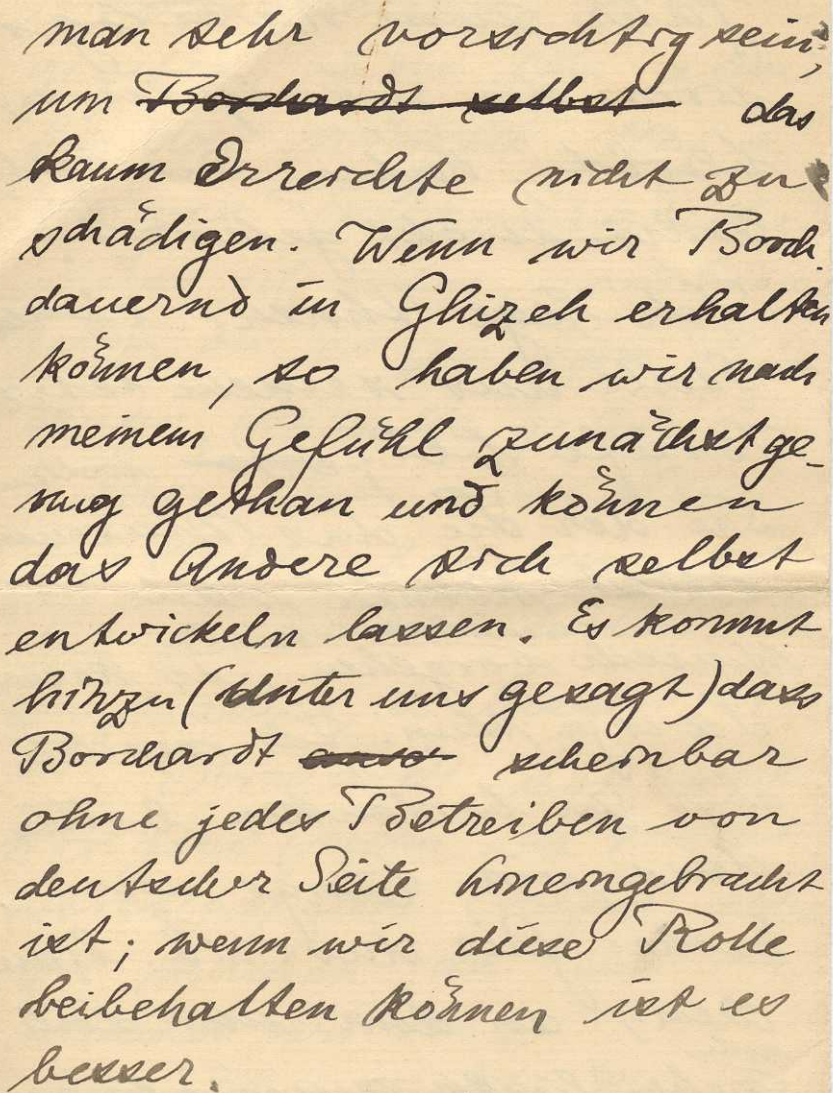 man sehr vorsichtig sein,
um Borchardt selbst das
kaum Erreichte nicht zu
schädigen. Wenn wir Borch.
dauernd in Ghizeh erhalten
können, so haben wir nach
meinem Gefühl zunächst ge-
nug gethan und können
das Andere sich selbst
entwickeln lassen. Es kommt
hinzu (unter uns gesagt) dass
Borchardt scheinbar
ohne jedes Betreiben von
deutscher Seite hineingebracht
ist; wenn wir diese Rolle
beibehalten können ist es
besser.